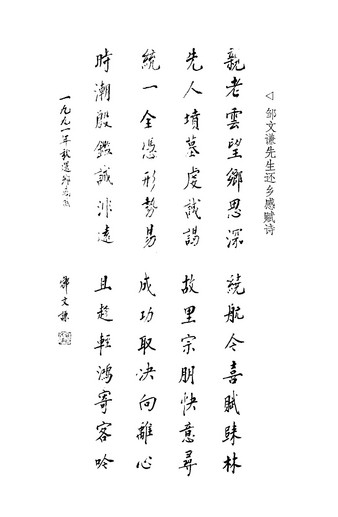 ◁ 邹文谦先生还乡感赋诗
親老雲望鄉思深 繞航今喜賦林
先人墳墓虔誠謁 故里宗朋快意尋
統一全憑形勢易 成功取决向離心
時潮殷鑑誠非遠 且趁輕鴻寄客吟
一九九一年秋 鄒文謙